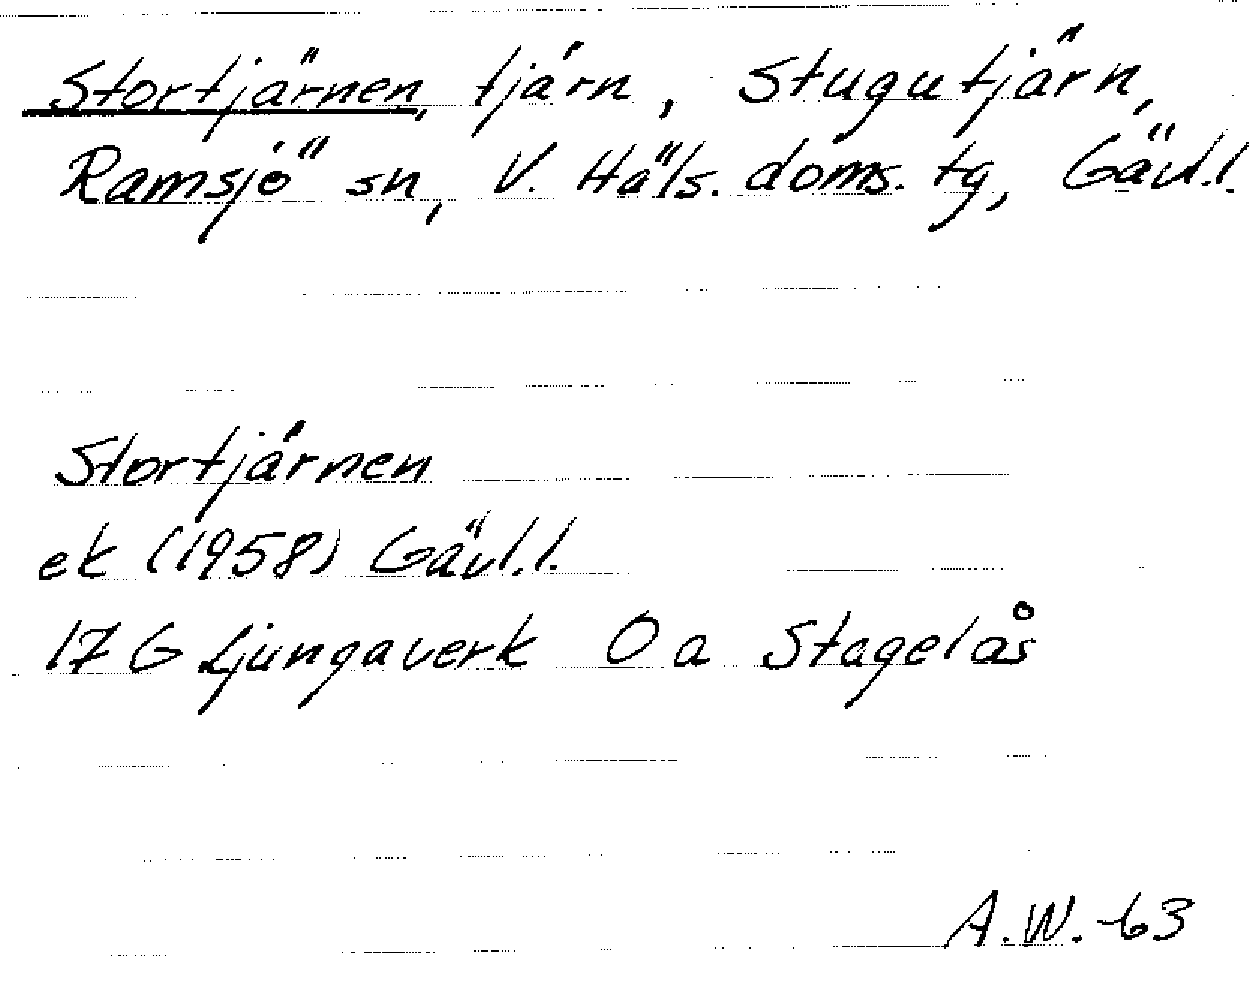 Stortjärnen, tjärn, Stugutjärn,
Ramsjö sn, V. Häls. doms. tg, Gävl.l.
Stortjärnen
ek (1958) Gävl.l.
17 G Ljungaverk O a Stagelås
A.W.-63